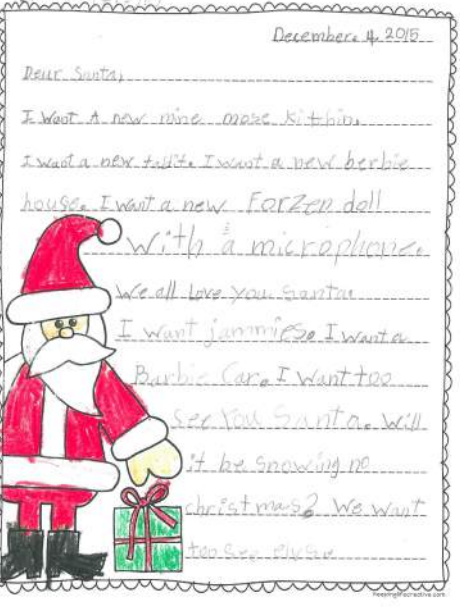 December. 4. 2015
Dear Santa,
I Want A new mine mose kitthin.
I want a new I want a new berbie
house. I want a new Forzen doll
With a microphone.
We all Love you Santa
I want jammies. I want a
Barbie Car. I Want too
See You Santa. Will
it be snowing no
christmas? We want
too see
keepinglifecreative.com